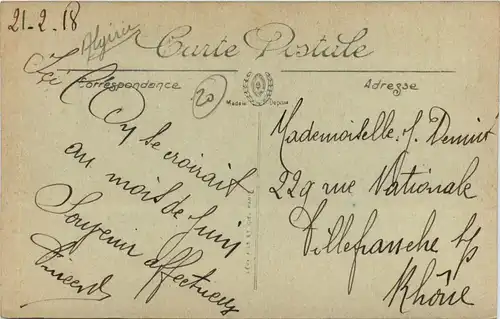 21-2.18
Algérie
Carte Postale
Correspondance
20
Made in
Depose
Adresse
Ici
On y se croirait
au mois de Juin
Souvenir affectueux
Mademoiselle J.
229 rue Nationale
Villefranche s/s
Rhône